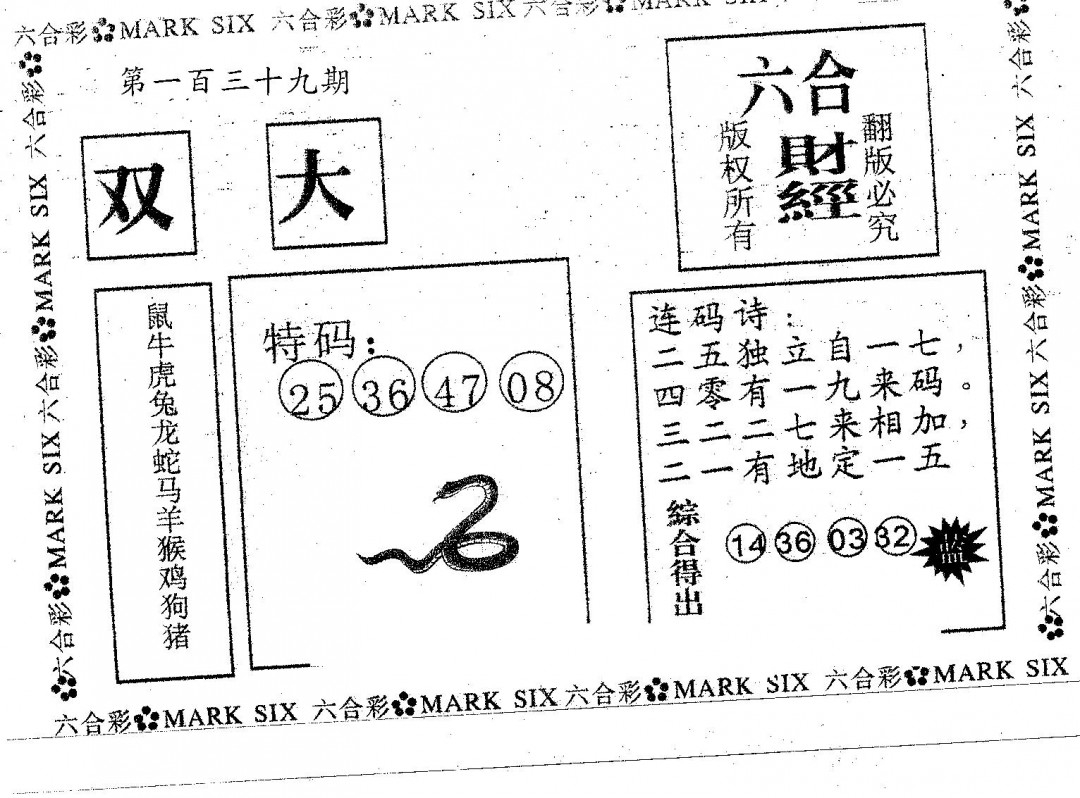 六合彩 MARK SIX 六合彩 MARK SIX 六合彩 MARK SIX
第一百三十九期
双
大
六合
財經
版权所有
翻版必究
鼠牛虎兔龙蛇马羊猴鸡狗猪
特码：
25 36 47 08
连码诗：
二五独立自一七，
四零有一九来码。
三二二七来相加，
二一有地定一五
綜合得出
14 36 03 32
六合彩 MARK SIX 六合彩 MARK SIX 六合彩
六合彩 MARK SIX 六合彩 MARK SIX 六合彩
六合彩 MARK SIX 六合彩 MARK SIX 六合彩 MARK SIX 六合彩 MARK SIX